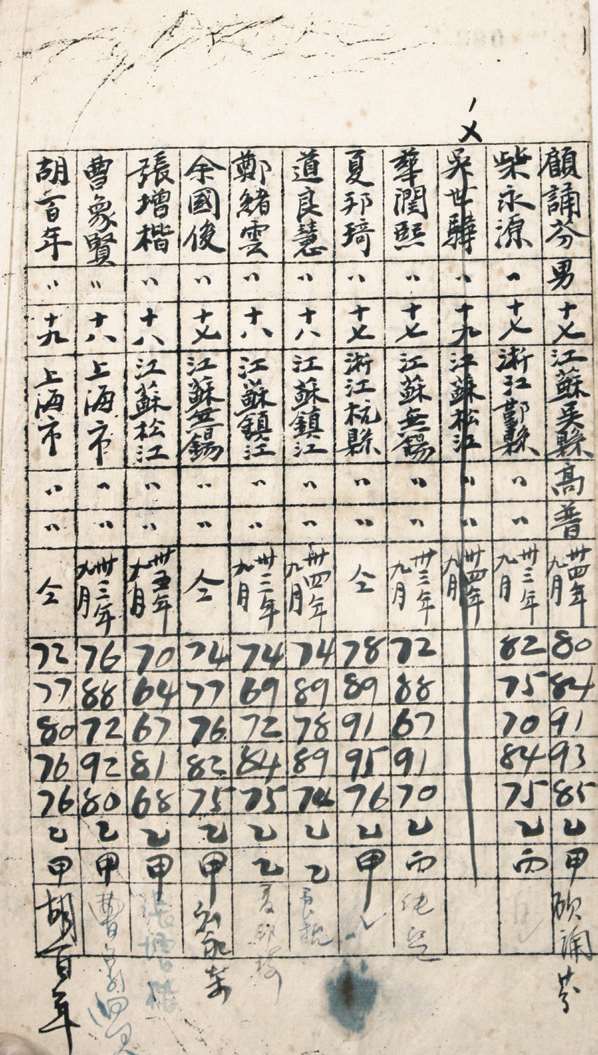 顧誦芬 男 十七 江蘇吳縣 高 普 卅四年九月 80 84 91 93 85 乙 甲 顧誦芬
柴永源 〃 十七 浙江鄞縣 〃 〃 卅三年九月 82 75 70 84 75 乙 丙
吳世驊 〃 十九 江蘇松江 〃 〃 卅四年九月
華潤熙 〃 十七 江蘇無錫 〃 〃 卅三年九月 72 88 67 91 70 乙 丙
夏邦琦 〃 十七 浙江杭縣 〃 〃 仝 78 89 91 95 76 乙 甲
道良慧 〃 十八 江蘇鎮江 〃 〃 卅四年九月 74 89 78 89 74 乙 乙
鄭緒雲 〃 十八 江蘇鎮江 〃 〃 卅三年九月 74 69 72 84 75 乙 乙
余國俊 〃 十七 江蘇無錫 〃 〃 仝 74 77 76 82 75 乙 甲
張增楷 〃 十八 江蘇松江 〃 〃 卅五年九月 70 64 67 81 68 乙 甲 張增楷
曹象賢 〃 十八 上海市 〃 〃 卅三年九月 76 88 72 92 80 乙 甲 曹象賢
胡百年 〃 十九 上海市 〃 〃 仝 72 77 80 76 76 乙 甲 胡百年